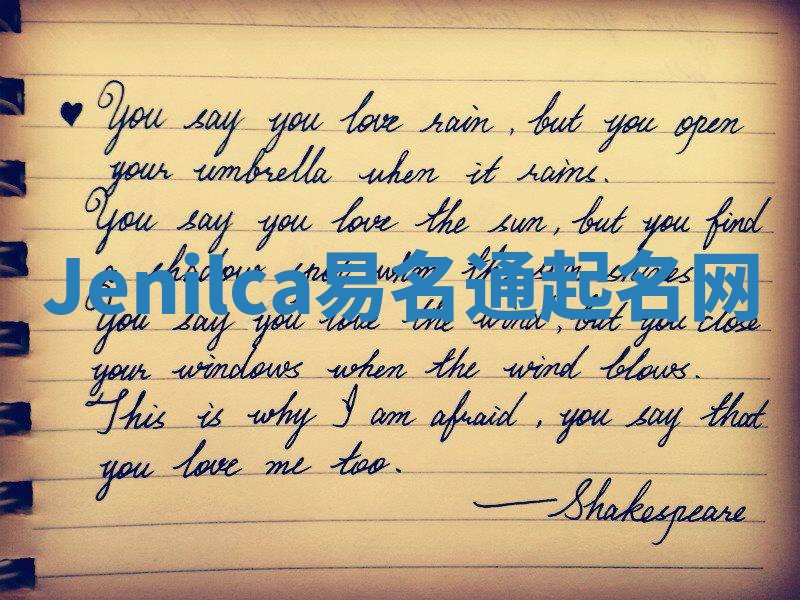 You say you love rain, but you open
your umbrella when it rains.
You say you love the sun, but you find
a shadow spot when the sun shines
Jenilca易名通起名网
You say you love the wind, but you close
your windows when the wind blows.
This is why I am afraid, you say that
you love me too.
—Shakespeare